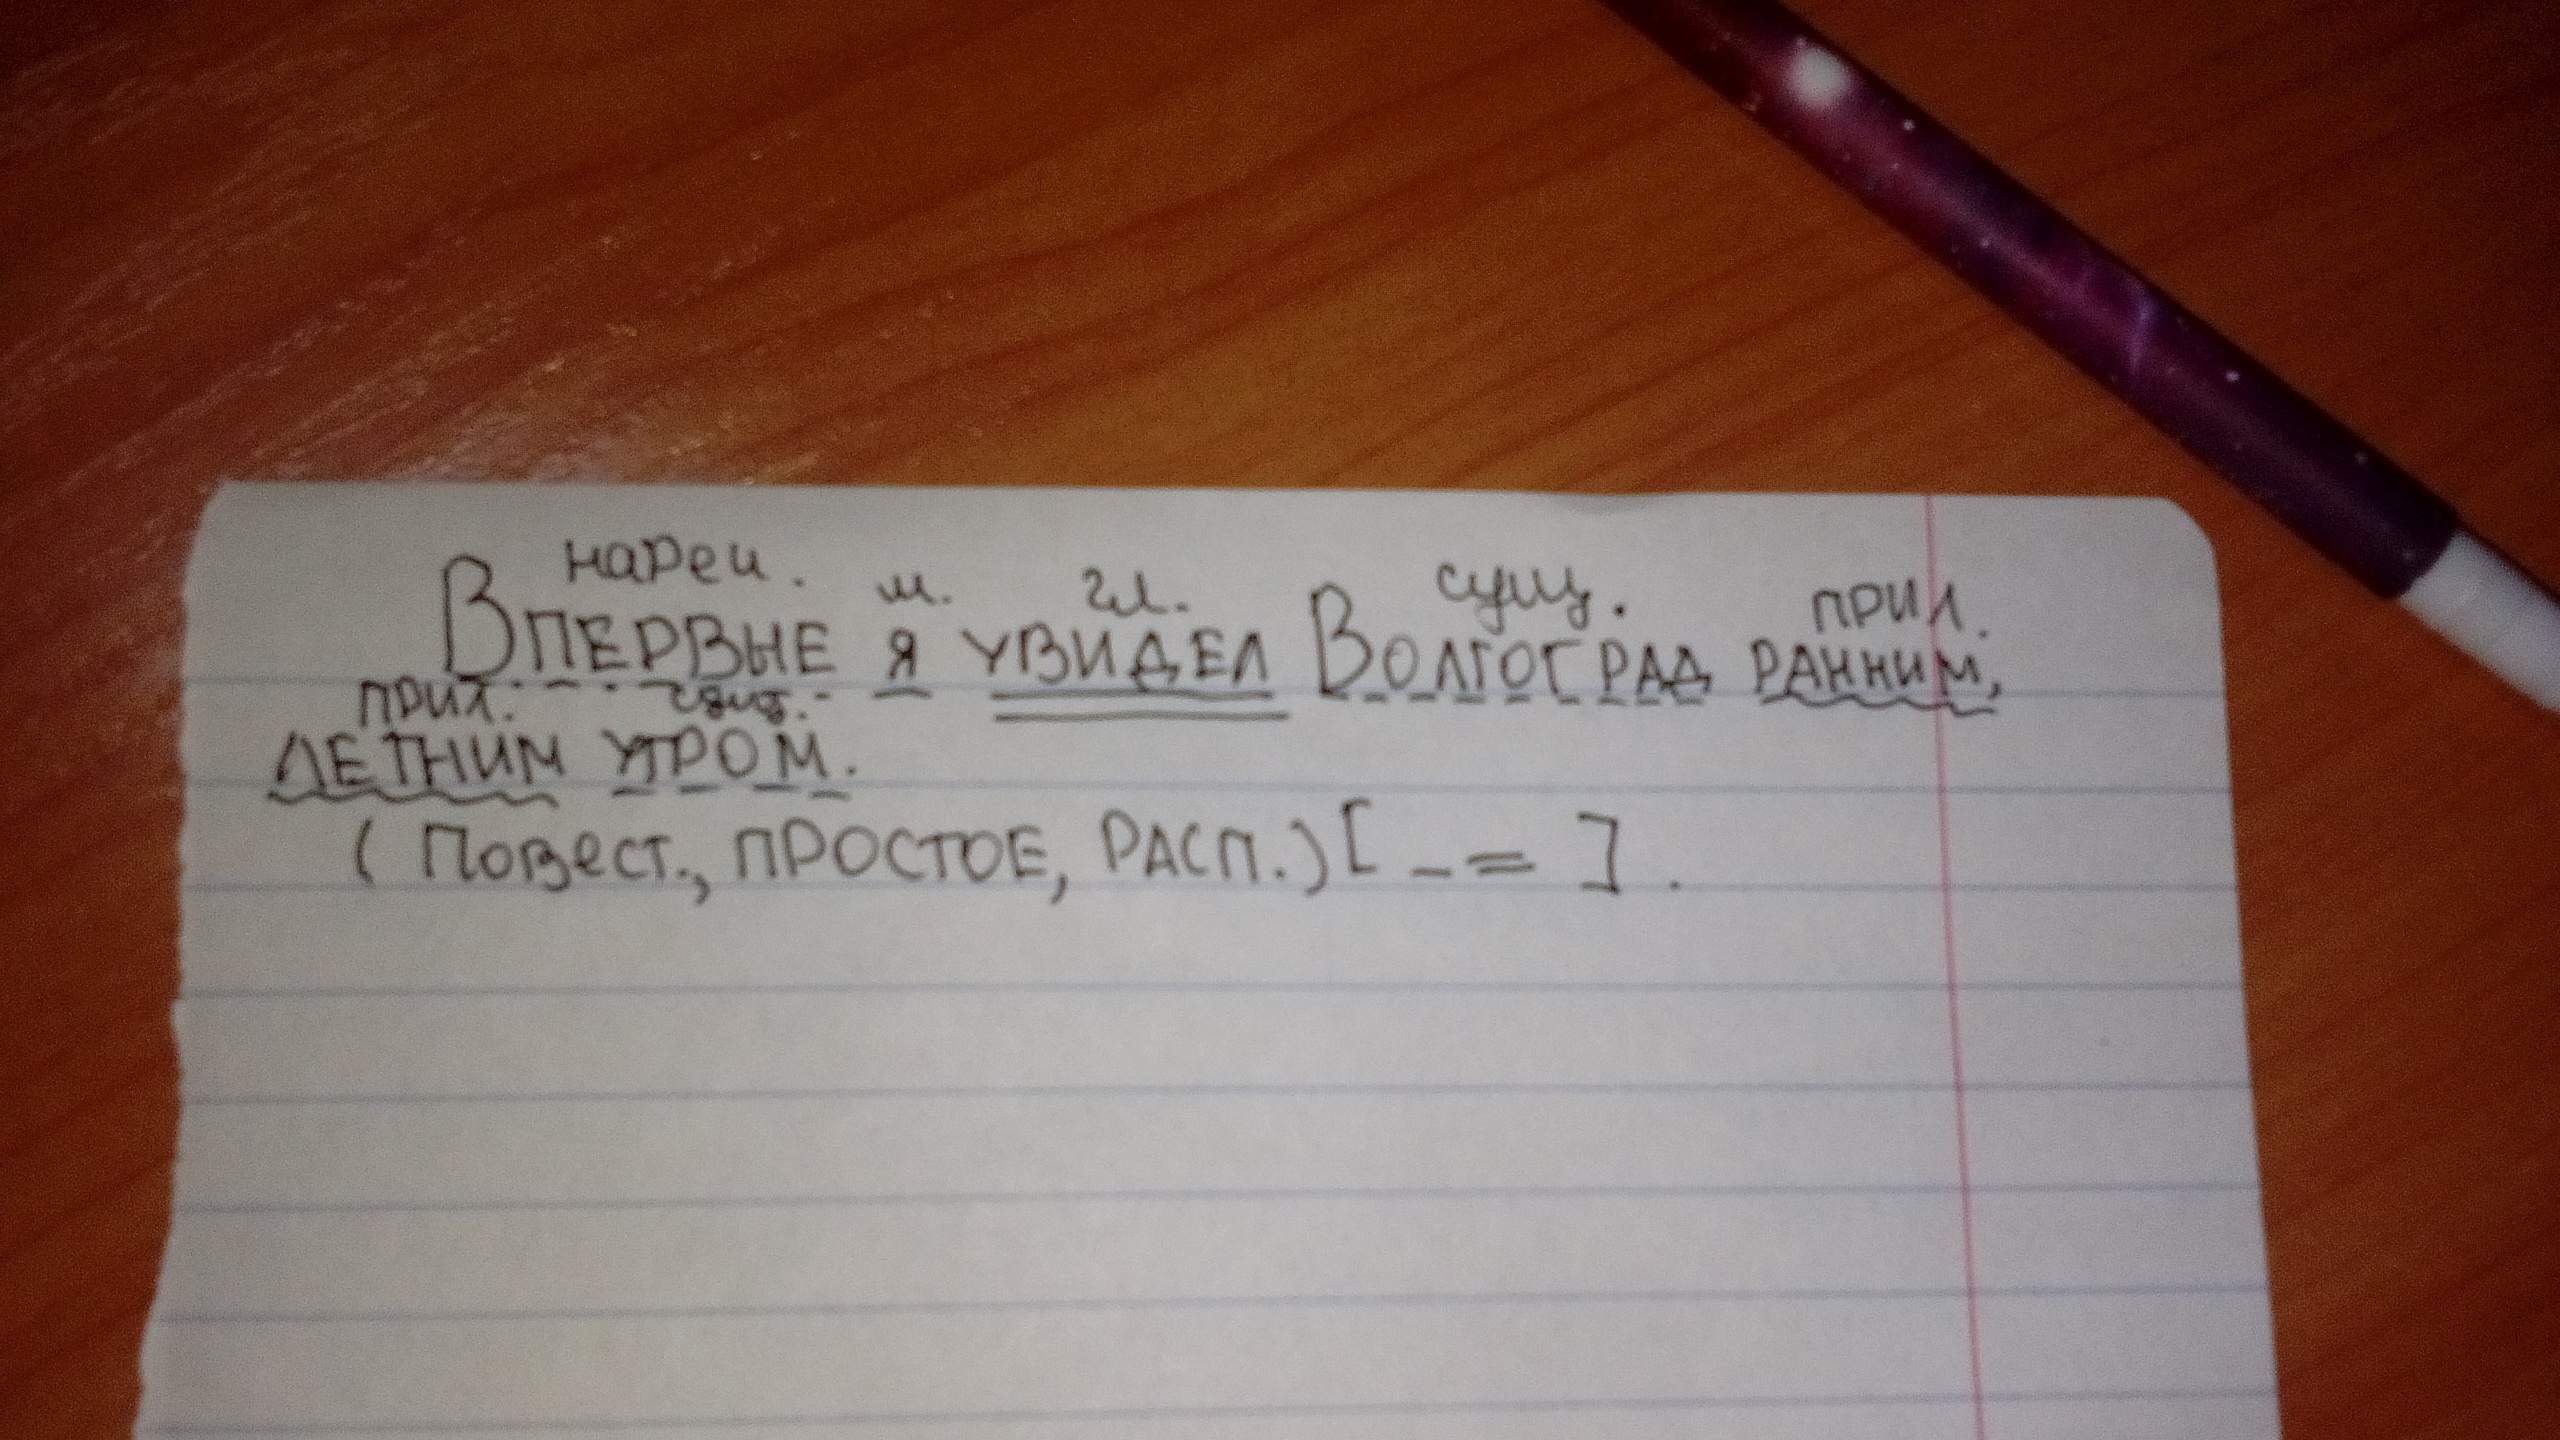 нареч. м. гл. сущ. прил.
Впервые я увидел Волгоград ранним,
прил. сущ.
летним утром.
(Повест., простое, расп.) [ _ = ] .